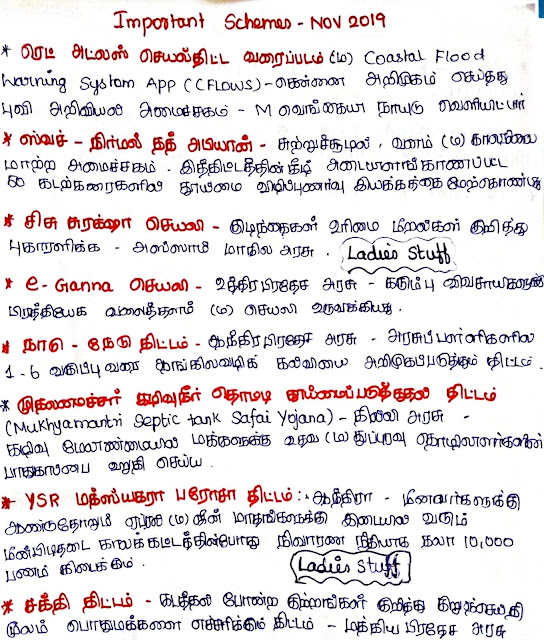 Important Schemes - NOV 2019
* ரெட் அட்லஸ் செயல்திட்ட வரைப்படம் (ம) Coastal Flood
Warning System App (CFLOWS) - சென்னை அறிமுகம் செய்தது
புவி அறிவியல் அமைச்சகம் - M வெங்கையா நாயுடு வெளியிட்டார்
* ஸ்வச் - நிர்மல் தத் அபியான் - சுற்றுச்சூழல், வனம் (ம) காலநிலை
மாற்ற அமைச்சகம். இத்திட்டத்தின் கீழ் அடையாளங்காணப்பட்ட
50 கடற்கரைகளில் தூய்மை விழிப்புணர்வு இயக்கத்தை மேற்கொண்டது
* சிசு சுரக்ஷா செயலி - குழந்தைகள் உரிமை மீறல்கள் குறித்து
புகாரளிக்க - அஸ்ஸாம் மாநில அரசு. Ladies Stuff
* e-Ganna செயலி - உத்திரபிரதேச அரசு - கரும்பு விவசாயிகளுக்கு
பிரத்தியேக வலைத்தளம் (ம) செயலி உருவாக்கியது.
* நாடு - நேடு திட்டம் - ஆந்திரபிரதேச அரசு - அரசுப்பள்ளிகளில்
1 - 6 வகுப்பு வரை ஆங்கிலவழிக் கல்வியை அறிமுகப்படுத்தும் திட்டம்.
* முதலமைச்சர் கழிவுநீர் தொட்டி தூய்மைப்படுத்துதல் திட்டம்
(Mukhyamantri Septic tank Safai Yojana) - தில்லி அரசு -
கழிவு மேலாண்மையில் மக்களுக்கு உதவ (ம) துப்புரவு தொழிலாளர்களின்
பாதுகாப்பை உறுதி செய்ய.
* YSR மத்ஸ்யகரா பரோசா திட்டம்: - ஆந்திரா - மீனவர்களுக்கு
ஆண்டுதோறும் ஏப்ரல் (ம) ஜீன் மாதங்களுக்கு இடையில் வரும்
மீன்பிடிதடை காலக்கட்டத்தின்போது நிவாரண நிதியாக ரூபா 10,000
பணம் கிடைக்கும். Ladies Stuff
* சக்தி திட்டம் - கடத்தல் போன்ற குற்றங்கள் குறித்து
மூலம் பொதுமக்களை எச்சரிக்கும் திட்டம் - மத்திய பிரதேச அரசு